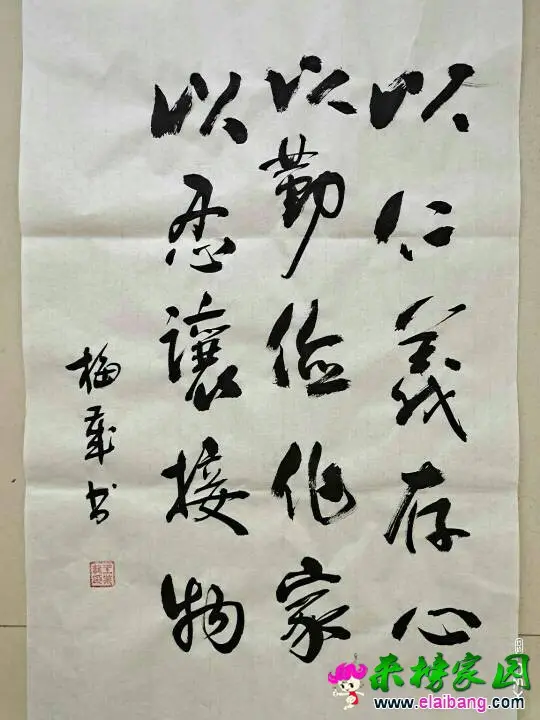 以仁義存心
以勤俭作家
以忍讓接物
梅葳书
来榜家园
www.elaibang.com